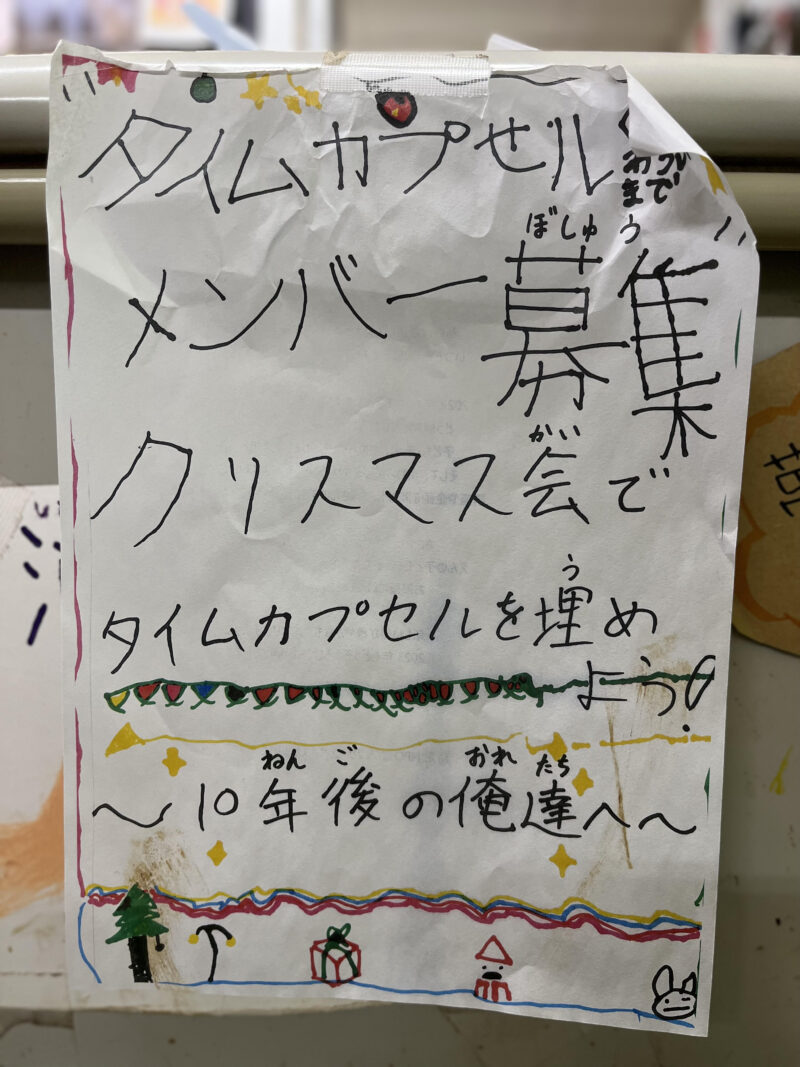 タイムカプセル
まで
ぼしゅう
メンバー募集
かい
クリスマス会で
う
タイムカプセルを埋め
よう!
ねんご おれたち
〜10年後の俺達へ〜